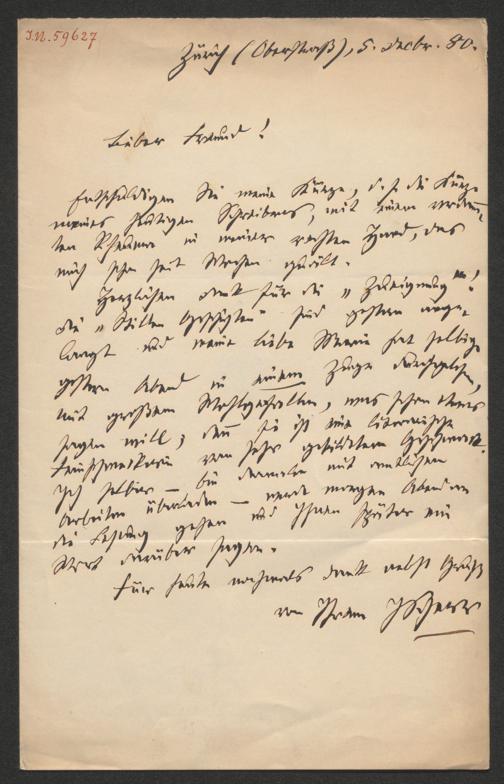 I.N. 59627
Zürich (Oberstraß), 5. Decbr. 80.
Lieber Freund!
Entschuldigen Sie meine Kürze, d. h. die Kürze
meines heutigen Schreibens, mit einem verdamm-
ten Rheuma in meiner rechten Hand, das
mich schon seit Wochen quält.
Herzlichen Dank für die „Zueignung“!
Die „Stillen Geschichten“ sind gestern ange-
langt und meine liebe Marie hat selbige
gestern Abend in einem Zuge durchgelesen,
mit großem Wohlgefallen, was schon etwas
sagen will; denn sie ist eine literarische
Feinschmeckerin von sehr gebildetem Geschmack.
Ich selber — bin dermalen mit amtlichen
Arbeiten überladen — werde morgen Abend an
die Lesung gehen und Ihnen später ein
Wort darüber sagen.
Für heute nochmals Dank nebst Gruß
von Ihrem JScherr